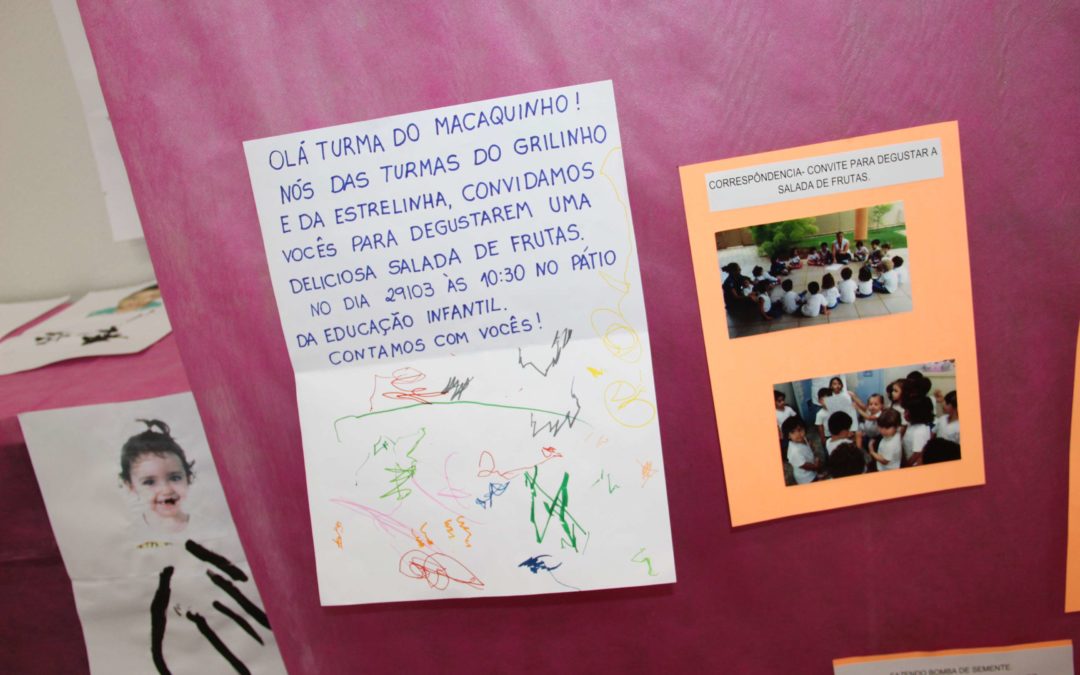 OLÁ TURMA DO MACAQUINHO!
NÓS DAS TURMAS DO GRILINHO
E DA ESTRELINHA, CONVIDAMOS
VOCÊS PARA DEGUSTAREM UMA
DELICIOSA SALADA DE FRUTAS.
NO DIA 29/03 ÀS 10:30 NO PÁTIO
DA EDUCAÇÃO INFANTIL.
CONTAMOS COM VOCÊS!
CORRESPÔNDENCIA- CONVITE PARA DEGUSTAR A
SALADA DE FRUTAS.
FAZENDO BOMBA DE SEMENTE